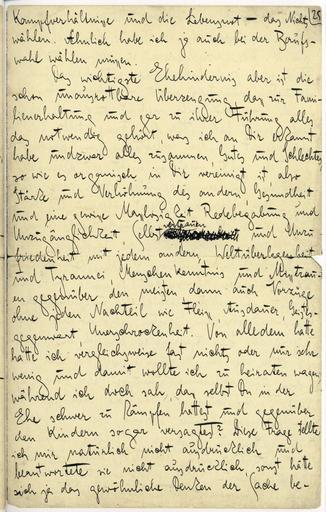 25
Kampfverhältnisse und die Lebensnot – das Nichts
wählen. Ähnlich habe ich ja auch bei der Berufs-
wahl wählen müssen.
Das wichtigste Ehehindernis aber ist die
schon unausrottbare Überzeugung, dass zur Fami-
lienerhaltung und gar zu ihrer Führung alles
das notwendig gehört, was ich an Dir erkannt
habe undzwar alles zusammen, Gutes und Schlechtes
so wie es organisch in Dir vereinigt ist, also
Stärke und Verhöhnung des andern, Gesundheit
und eine gewisse Masslosigkeit, Redebegabung und
Unzugänglichkeit, Selbstvertrauen und Unzu
friedenheit mit jedem andern, Weltüberlegenheit
und Tyrannei, Menschenkenntnis und Misstrau-
en gegenüber den meisten, dann auch Vorzüge
ohne jeden Nachteil wie Fleiss, Ausdauer, Geistes-
gegenwart, Unerschrockenheit. Von alledem hatte
ich vergleichsweise fast nichts oder nur sehr
wenig und damit wollte ich zu heiraten wagen,
während ich doch sah, dass selbst Du in der
Ehe schwer zu kämpfen hattest und gegenüber
den Kindern sogar versagtest? Diese Frage stellte
ich mir natürlich nicht ausdrücklich und
beantwortete sie nicht ausdrücklich, sonst hätte
sich ja das gewöhnliche Denken der Sache be-